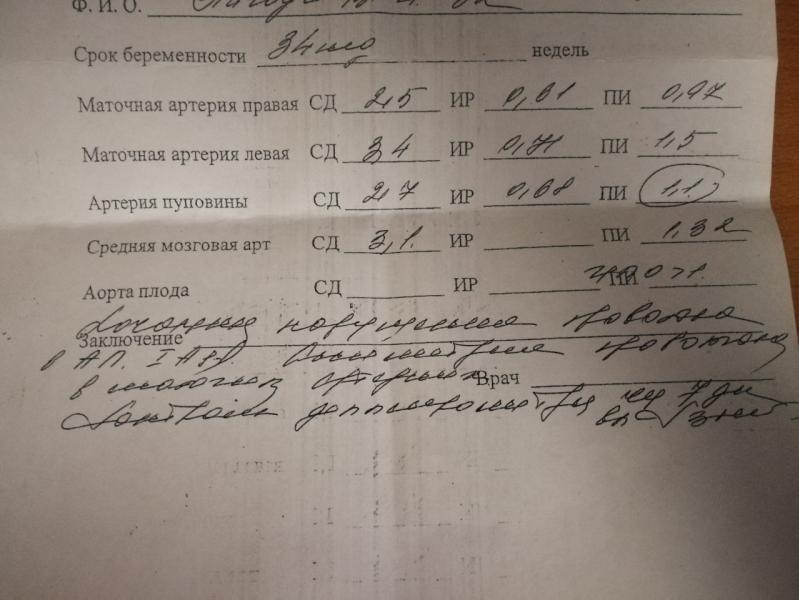 Ф. И. О.
Срок беременности 34 нед недель
Маточная артерия правая СД 2,5 ИР 0,61 ПИ 0,97
Маточная артерия левая СД 3,4 ИР 0,71 ПИ 1,5
Артерия пуповины СД 2,7 ИР 0,68 ПИ 1,1
Средняя мозговая арт СД 3,1 ИР ПИ 1,32
Аорта плода СД ИР ПИ
нарушения кровотока
Заключение
в АП. кровотока
в маточных артериях Врач
Контроль допплерометрии 7 дн